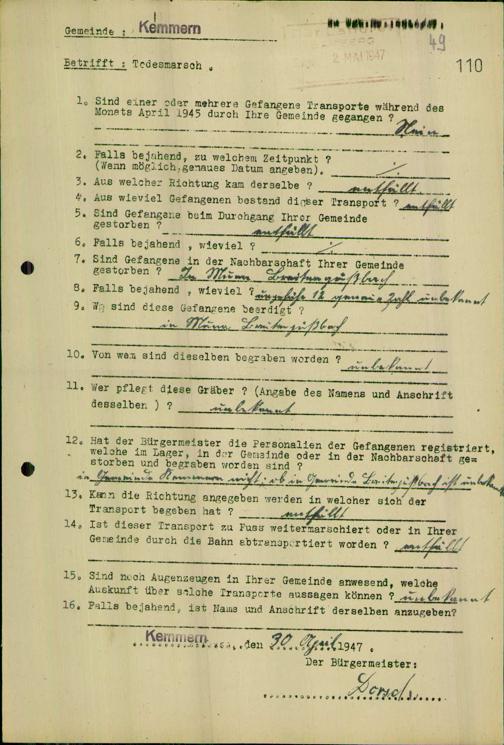 Gemeinde : Kemmern
49
2. MAI 1947
110
Betrifft : Todesmarsch .
1. Sind einer oder mehrere Gefangene Transporte während des
Monats April 1945 durch Ihre Gemeinde gegangen ?
Nein
2. Falls bejahend, zu welchem Zeitpunkt ?
(Wenn möglich,genaues Datum angeben). ./.
3. Aus welcher Richtung kam derselbe ? entfällt
4. Aus wieviel Gefangenen bestand dieser Transport ? entfällt
5. Sind Gefangene beim Durchgang Ihrer Gemeinde
gestorben ? entfällt
6. Falls bejahend , wieviel ? ./.
7. Sind Gefangene in der Nachbarschaft Ihrer Gemeinde
gestorben ? In Breitengüßbach
8. Falls bejahend, wieviel ? ungefähr 12 genaue Zahl unbekannt
9. Wo sind diese Gefangene beerdigt ?
in Breitengüßbach
10. Von wem sind dieselben begraben worden ? unbekannt
11. Wer pflegt diese Gräber ? (Angabe des Namens und Anschrift
desselben ) ? unbekannt
12. Hat der Bürgermeister die Personalien der Gefangenen registriert,
welche im Lager, in der Gemeinde oder in der Nachbarschaft ge=
storben und begraben worden sind ?
in Gemeinde Kemmern nicht, ob in Gemeinde Breitengüßbach ist unbekannt
13. Kann die Richtung angegeben werden in welcher sich der
Transport begeben hat ? entfällt
14. Ist dieser Transport zu Fuss weitermarschiert oder in Ihrer
Gemeinde durch die Bahn abtransportiert worden ? entfällt
15. Sind noch Augenzeugen in Ihrer Gemeinde anwesend, welche
Auskunft über solche Transporte aussagen können ? unbekannt
16. Falls bejahend, ist Name und Anschrift derselben anzugeben?
Kemmern, den 30. April 1947 .
Der Bürgermeister: